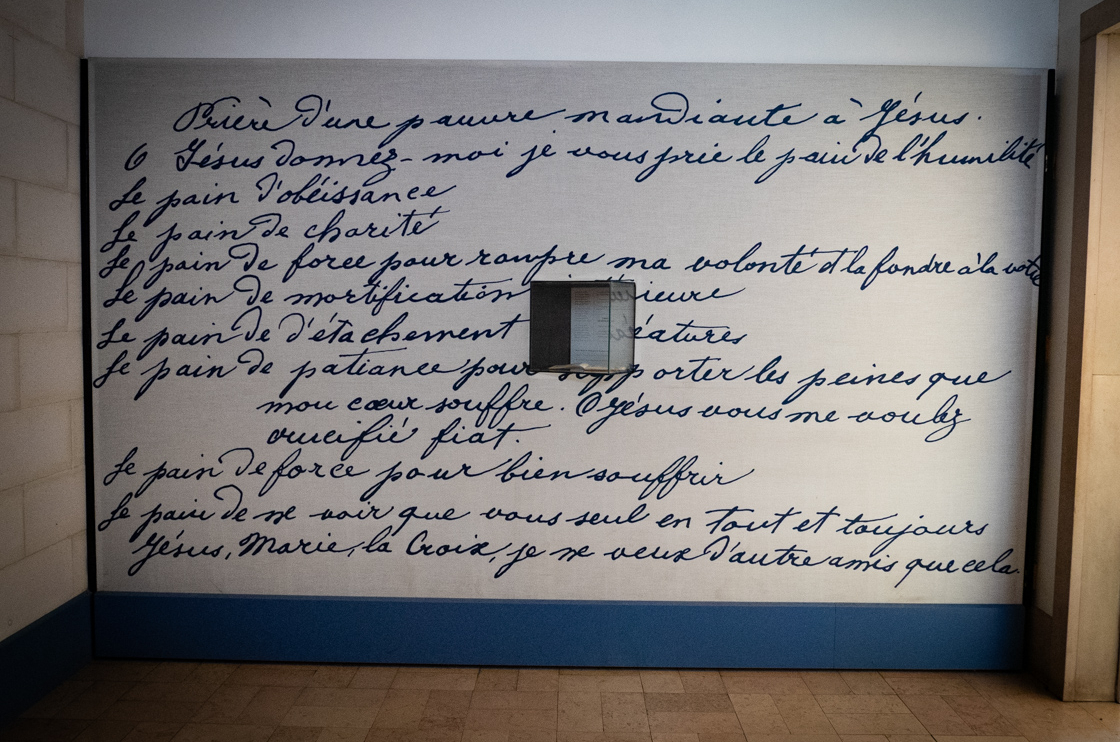 Prière d'une pauvre mandiante à Jésus.
O Jésus donnez-moi je vous prie le pain de l'humilité
Le pain d'obéissance
Le pain de charité
Le pain de force pour rompre ma volonté et la fondre à la votre
Le pain de mortification
Le pain de d'étachement
Le pain de patiance pour supporter les peines que
mon cœur souffre. O Jésus vous me voulez
crucifié fiat.
Le pain de force pour bien souffrir
Le pain de ne voir que vous seul en tout et toujours
Jésus, Marie, la Croix, je ne veux d'autre amis que cela.